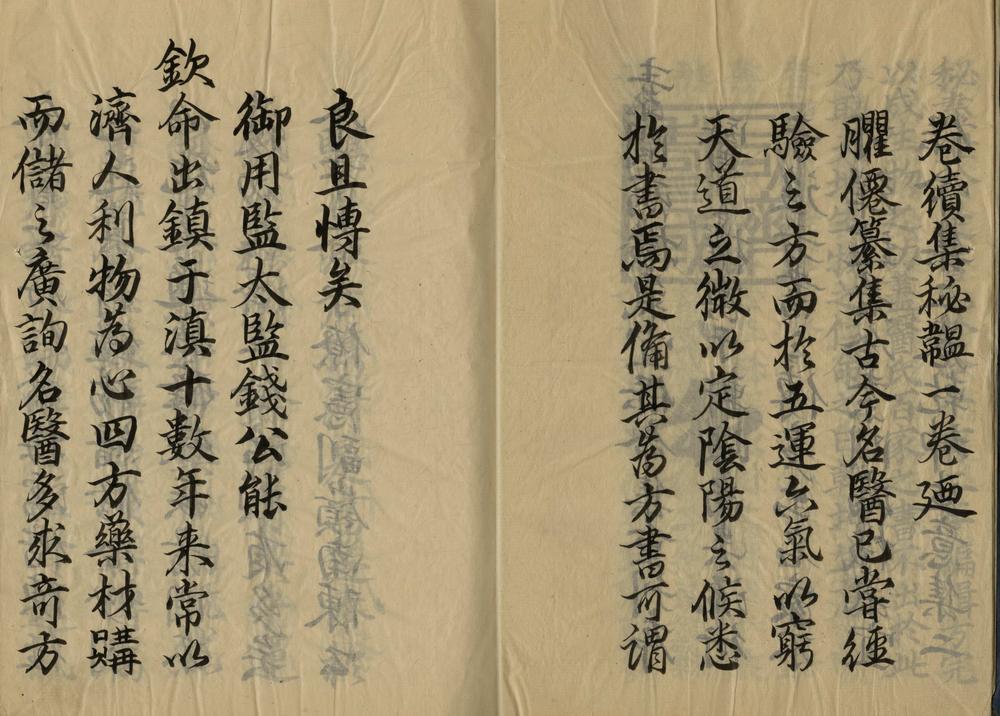 卷續集秘韞一卷廼
臞僊纂集古今名醫已甞經
驗之方而於五運六氣以窮
天道之微以定陰陽之候悉
於書焉是俻其為方書可謂
良且愽矣
御用監太監錢公能
欽命出鎮于滇十數年来常以
濟人利物為心四方藥材購
而儲之廣詢名醫多求竒方